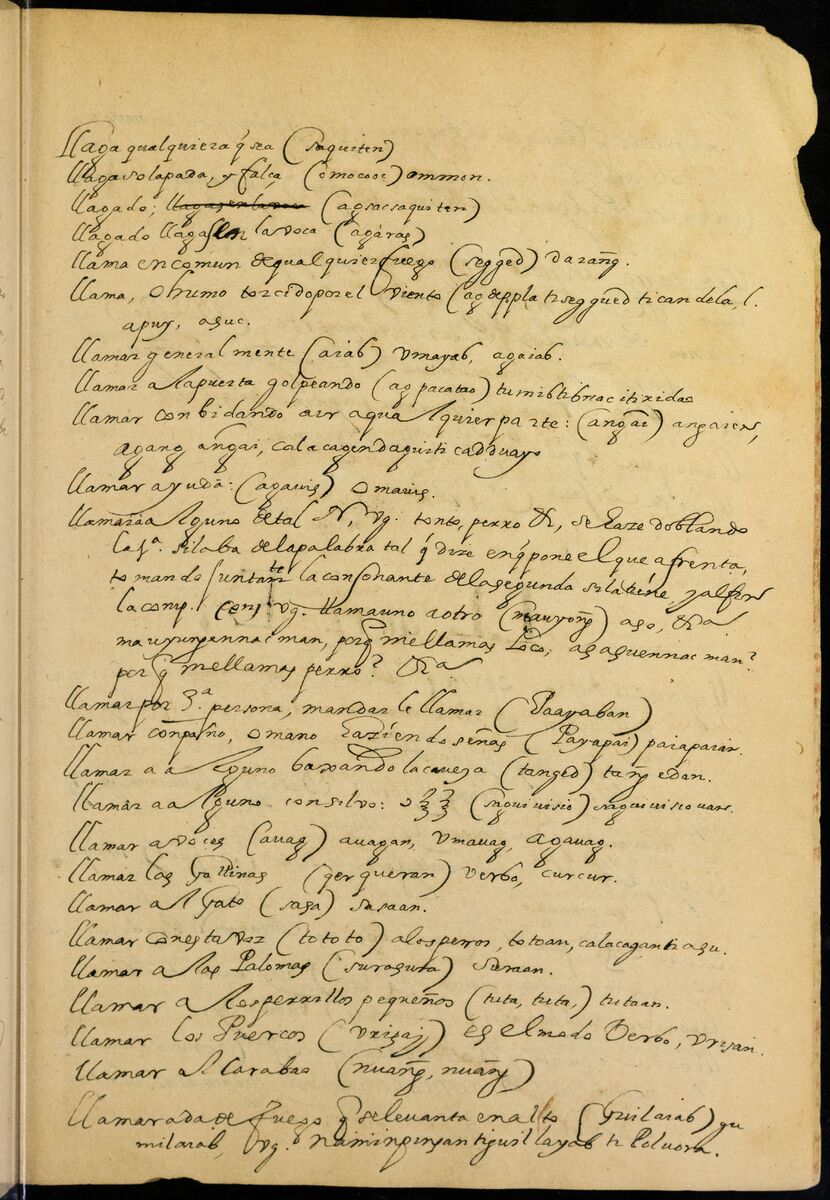 Llaga qualquiera q̃ sea (saquiten)
Llaga solapada, y falça (omoooc) ommon.
Llagado; llagas en la voca (agsacsaquiten)
Llagado llagas en la voca (agáras)
Llama en comun de qualquier fuego (segged) darang̃.
Llama, O humo torcido por el viento (ag deppla ti seggued ti candela, l.
apuy, asuc.
Llamar generalmente (aiab) vmayab, agaiab.
Llamar a la puerta golpeando (ag pacatao)
Llamar conbidando a ir a qualquier parte: (ang̃ai) angaien,
agang ang̃ai,
Llamar ayuda: (agauis) omauis.
Llamar a Alguno de tal N, vg. tonto, perro &, se haze doblando
la 1ª. silaba de la palabra tal q̃ dize en q̃ pone el que afrenta,
tomando juntamte la consonante de la segunda si la tiene, y al fin
la comp. vg. llama uno a otro (mauyong̃) aso, &a
mauyunyennac man, porq̃ me llamas Loco; asasuennac man?
por q̃ me llamas perro? &a
Llamar por 3.ª persona, mandarle llamar (Paayaban)
Llamar con paño, o mano haziendo señas (Payapai) paiapaian.
Llamar a Alguno baxando la caveza (tanged) tang̃edan.
Llamar a Alguno con silvo: (saguiuisio) saguiuisiouan.
Llamar a voces (auag) auagan, vmauag, agauag.
Llamar las Gallinas (querqueran) verbo, curcur.
Llamar Al Gato (sasa) sasaan.
Llamar con esta voz (tototo) a los perros, totoan, calacaganti asu.
Llamar a las Palomas (surasura) suraan.
Llamar a los perrillos pequeños (tuta, tuta,) tutaan.
Llamar los Puercos (vrisay) es el modo Verbo, vrisan.
Llamar Al Carabao (nuang̃, nuang̃)
Llamarada de fuego q̃ se levanta en alto (Guilaiab) gu
milaiab, vg. ti guillayab ti Polvora.